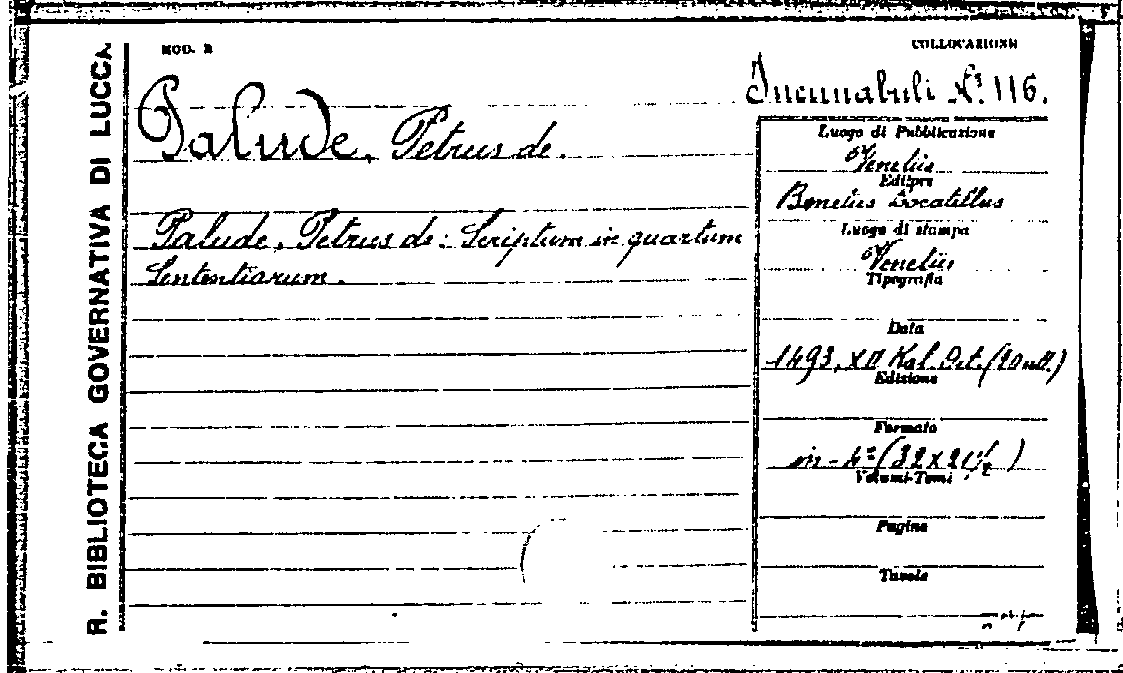 R. BIBLIOTECA GOVERNATIVA DI LUCCA
MOD. B
COLLOCAZIONE
Incunabuli N.º 116.
Palude, Petrus de.
Palude, Petrus de: Scriptum in quartum
Sententiarum.
Luogo di Pubblicazione
Venetiis
Editore
Bonetus Locatellus
Luogo di stampa
Venetiis
Tipografia
Data
1493, XII Kal. Oct. (20 sett.)
Edizione
Formato
in-4º (32 x 21½)
Volumi-Tomi
Pagine
Tavole